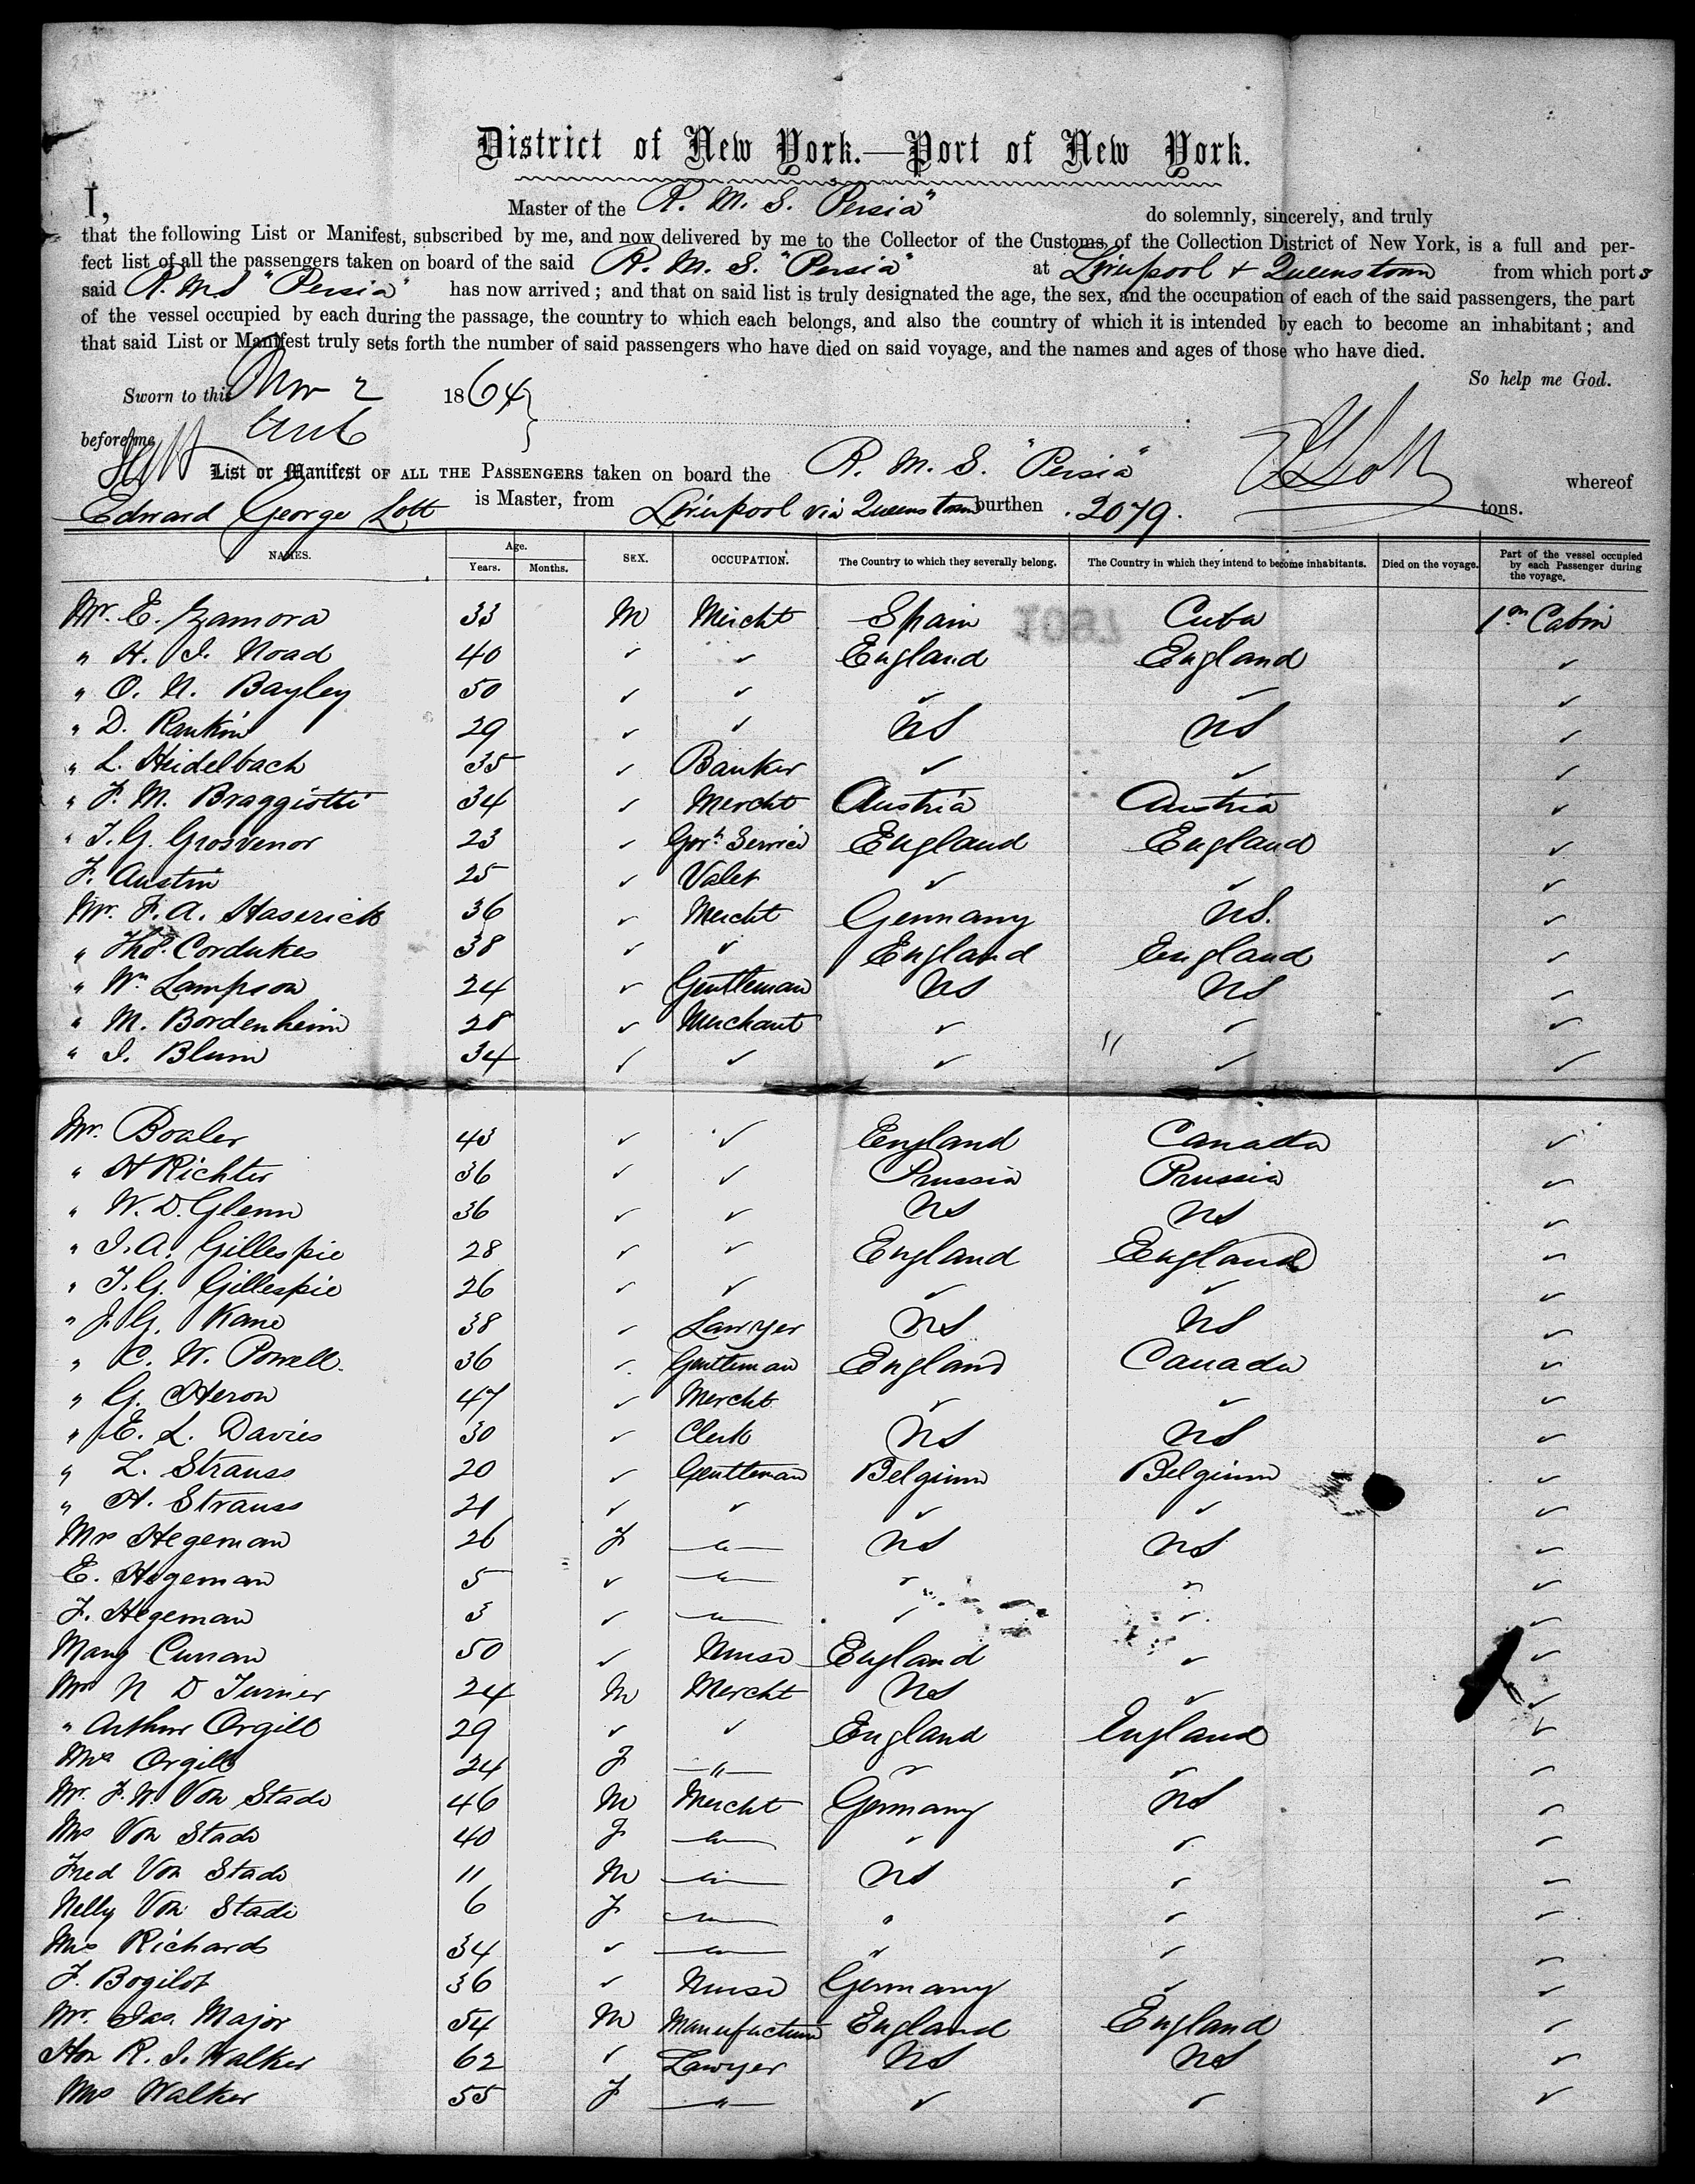 District of New York.—Port of New York.
I, Master of the R. M. S. "Persia" do solemnly, sincerely, and truly
that the following List or Manifest, subscribed by me, and now delivered by me to the Collector of the Customs of the Collection District of New York, is a full and per-
fect list of all the passengers taken on board of the said R. M. S. "Persia" at Liverpool & Queenstown from which ports
said R. M. S "Persia" has now arrived; and that on said list is truly designated the age, the sex, and the occupation of each of the said passengers, the part
of the vessel occupied by each during the passage, the country to which each belongs, and also the country of which it is intended by each to become an inhabitant; and
that said List or Manifest truly sets forth the number of said passengers who have died on said voyage, and the names and ages of those who have died.
So help me God.
Sworn to this Nov 2 1864
before me
List or Manifest OF ALL THE PASSENGERS taken on board the R. M. S. "Persia" whereof
Edward George Lott is Master, from Liverpool via Queenstown burthen 2079. tons.
NAMES. Age. Years. Months. SEX. OCCUPATION. The Country to which they severally belong. The Country in which they intend to become inhabitants. Died on the voyage. Part of the vessel occupied by each Passenger during the voyage.
Mr. E. Zamora 33 M Mercht Spain Cuba 1st Cabin
" H. J. Noad 40 ✓ ✓ England England ✓
" O. N. Bayley 50 ✓ ✓ ✓ ✓ ✓
" D. Rankin 29 ✓ ✓ US US ✓
" L. Heidelbach 35 ✓ Banker ✓ ✓ ✓
" F. M. Braggiotti 34 ✓ Mercht Austria Austria ✓
" T. G. Grosvenor 23 ✓ Govt Service England England ✓
F. Austin 25 ✓ Valet ✓ ✓ ✓
Mr. F. A. Haserick 36 ✓ Mercht Germany US. ✓
" Thos. Cordukes 38 ✓ ✓ England England ✓
" Wm Lampson 24 ✓ Gentleman US US ✓
" M. Bordenheim 28 ✓ Merchant ✓ ✓ ✓
" I. Blum 34 ✓ ✓ ✓ ✓ ✓
Mr. Boaler 43 ✓ ✓ England Canada ✓
" H Richter 36 ✓ ✓ Prussia Prussia ✓
" W. D. Glenn 36 ✓ ✓ US US ✓
" J. A. Gillespie 28 ✓ ✓ England England ✓
" T. G. Gillespie 26 ✓ ✓ ✓ ✓ ✓
" J. G. Kane 38 ✓ Lawyer US US ✓
" C. W. Powell. 36 ✓ Gentleman England Canada ✓
" G. Heron 47 ✓ Mercht ✓ ✓ ✓
" E. L. Davies 30 ✓ Clerk US US ✓
" L. Strauss 20 ✓ Gentleman Belgium Belgium ✓
" H. Strauss 21 ✓ ✓ ✓ ✓ ✓
Mrs Hegeman 26 F —"— US US ✓
E. Hegeman 5 ✓ —"— ✓ ✓ ✓
F. Hegeman 3 ✓ —"— ✓ ✓ ✓
Mary Curran 50 ✓ Nurse England ✓ ✓
Mr N D Turner 24 M Mercht US ✓ ✓
" Arthur Orgill 29 ✓ ✓ England England ✓
Mrs Orgill 24 F —"— ✓ ✓ ✓
Mr. F. W. Von Stade 46 M Mercht Germany US ✓
Mrs Von Stade 40 F —"— ✓ ✓ ✓
Fred Von Stade 11 M —"— US ✓ ✓
Nelly Von Stade 6 F —"— " ✓ ✓
Mrs Richards 34 ✓ —"— ✓ ✓ ✓
F. Bogilot 36 ✓ Nurse Germany ✓ ✓
Mr. Jas. Major 54 M Manufacturer England England ✓
Hon R. J. Walker 62 ✓ Lawyer US US ✓
Mrs Walker 55 F —"— ✓ ✓ ✓